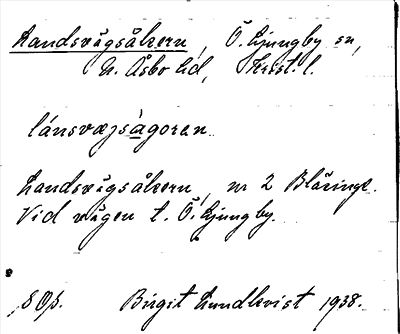 Landsvägsåkern, Ö. Ljungby sn,
N. Åsbo hd, Krist. l.
lánsvægsàgoren
Landsvägsåkern, nr 2 Blåsinge.
Vid vägen t. Ö. Ljungby.
Birgit Lundkvist 1938.